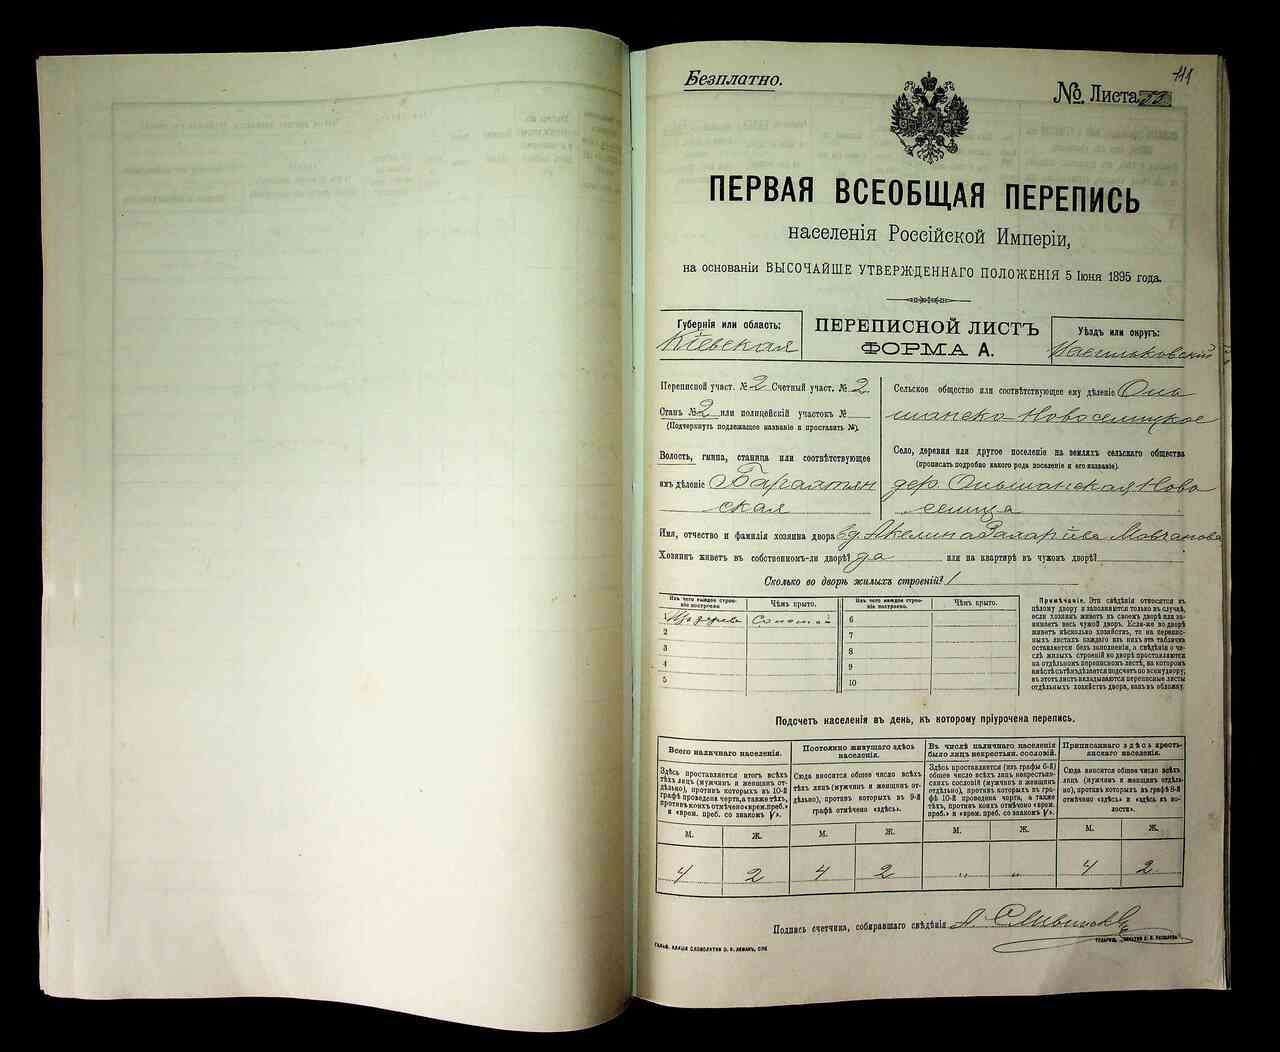 Безплатно.
111
№ Листа 53
ПЕРВАЯ ВСЕОБЩАЯ ПЕРЕПИСЬ
населенія Россійской Имперіи,
на основаніи ВЫСОЧАЙШЕ УТВЕРЖДЕННАГО ПОЛОЖЕНІЯ 5 Іюня 1895 года.
Губернія или область:
Кіевская
ПЕРЕПИСНОЙ ЛИСТЪ
ФОРМА А.
Уѣздъ или округъ:
Васильковскій
Переписной участ. № 2 Счетный участ. № 2.
Станъ № 2 или полицейскій участокъ №
(Подчеркнуть подлежащее названіе и проставить №).
Волость, гмина, станица или соотвѣтствующее
имъ дѣленіе Барахтян
ская
Сельское общество или соотвѣтствующее ему дѣленіе Оль
шанско Новоселицкое
Село, деревня или другое поселеніе на земляхъ сельскаго общества
(прописать подробно какого рода поселеніе и его названіе).
дер. Ольшанская Ново
селица
Имя, отчество и фамилія хозяина двора вд. Акелина Захаріева Мовчанова
Хозяинъ живетъ въ собственномъ-ли дворѣ? да или на квартирѣ въ чужомъ дворѣ?
Сколько во дворѣ жилыхъ строеній? 1
Изъ чего каждое строеніе построено.
Чѣмъ крыто.
Изъ чего каждое строеніе построено.
Чѣмъ крыто.
1 Из дерева Соломой 6
2 7
3 8
4 9
5 10
Примѣчаніе. Эти свѣдѣнія относятся къ
цѣлому двору и заполняются только въ случаѣ,
если хозяинъ живетъ въ своемъ дворѣ или за-
нимаетъ весь чужой дворъ. Если-же во дворѣ
живетъ нѣсколько хозяйствъ, то на перепис-
ныхъ листахъ каждаго изъ нихъ эта табличка
оставляется безъ заполненія, а свѣдѣнія о чи-
слѣ жилыхъ строеній во дворѣ проставляются
на отдѣльномъ переписномъ листѣ, на которомъ
вмѣстѣ съ тѣмъ дѣлается подсчетъ по всему двору;
въ этотъ листъ вкладываются переписные листы
отдѣльныхъ хозяйствъ двора, какъ въ обложку.
Подсчетъ населенія въ день, къ которому пріурочена перепись.
Всего наличнаго населенія.
Здѣсь проставляется итогъ всѣхъ
лицъ (мужчинъ и женщинъ от-
дѣльно), противъ которыхъ въ 10-й
графѣ проведена черта, а также тѣхъ,
противъ коихъ отмѣчено «врем. преб.»
и «врем. преб. со знакомъ V».
Постоянно живущаго здѣсь
населенія.
Сюда вносится общее число всѣхъ
тѣхъ лицъ (мужчинъ и женщинъ от-
дѣльно), противъ которыхъ въ 9-й
графѣ отмѣчено «здѣсь».
Въ числѣ наличнаго населенія
было лицъ некрестьян. сословій.
Здѣсь проставляется (изъ графы 6-й)
общее число всѣхъ лицъ некрестьян-
скихъ сословій (мужчинъ и женщинъ
отдѣльно), противъ которыхъ въ гра-
фѣ 10-й проведена черта, а также
тѣхъ, противъ коихъ отмѣчено «врем.
преб.» и «врем. преб. со знакомъ V».
Приписаннаго здѣсь кресть-
янскаго населенія.
Сюда вносится общее число всѣхъ
лицъ (мужчинъ и женщинъ отдѣль-
но), противъ которыхъ въ графѣ 8-й
отмѣчено «здѣсь» и «здѣсь въ во-
лости».
М. Ж. М. Ж. М. Ж. М. Ж.
4 2 4 2 „ „ 4 2
Подпись счетчика, собиравшаго свѣдѣнія